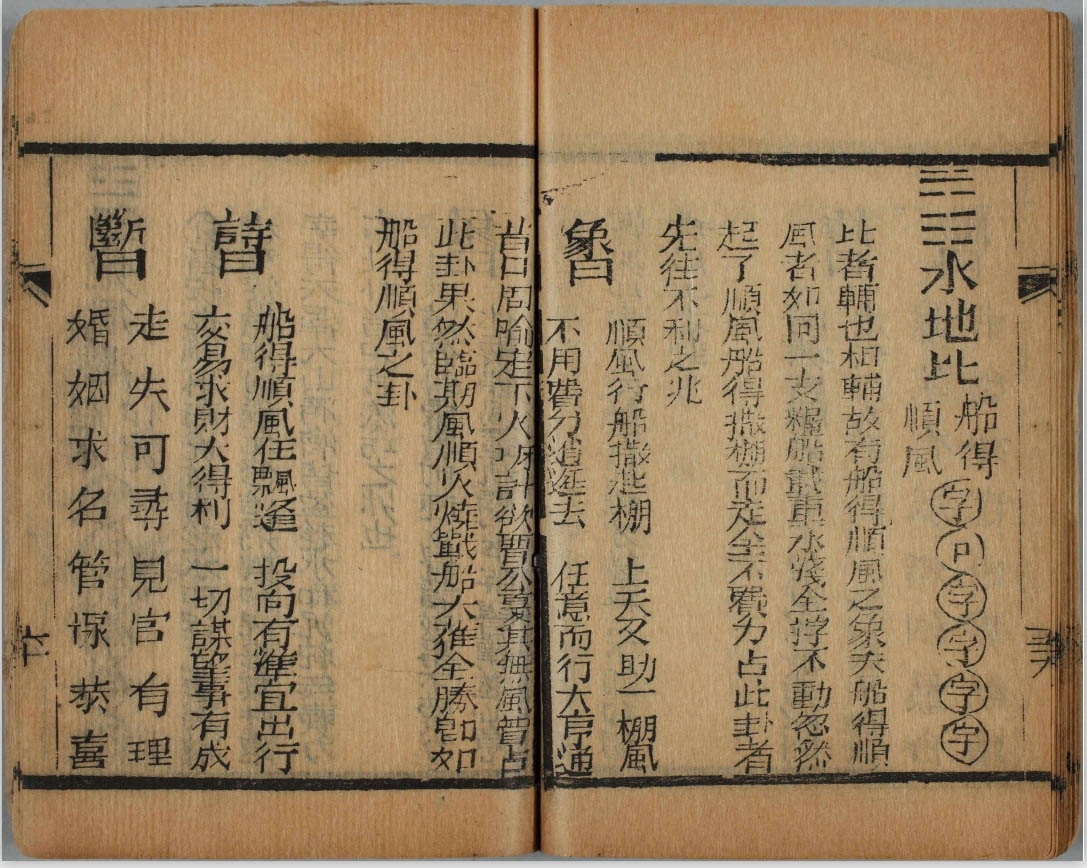 水地比
船得
順風
字
可
字
字
字
字
比者輔也相輔故有船得順風之象夫船得順
風者如同一支糧船載重水淺全撑不動忽然
起了順風船得撒棚而走全不費力占此卦者
先往不利之兆
象曰
順風行船撒起棚 上天又助一棚風
不用費力逍遙去 任意而行大亨通
昔日周喻定下火攻計欲曹公
無風曾占
此卦果然臨期風順火燒戰船大
全勝卽如
船得順風之卦
詩曰
船得順風任飄
投向有準宜出行
交易求財大得利 一切謀望事有成
斷曰
走失可尋見官有理
婚姻求名管
恭喜
六